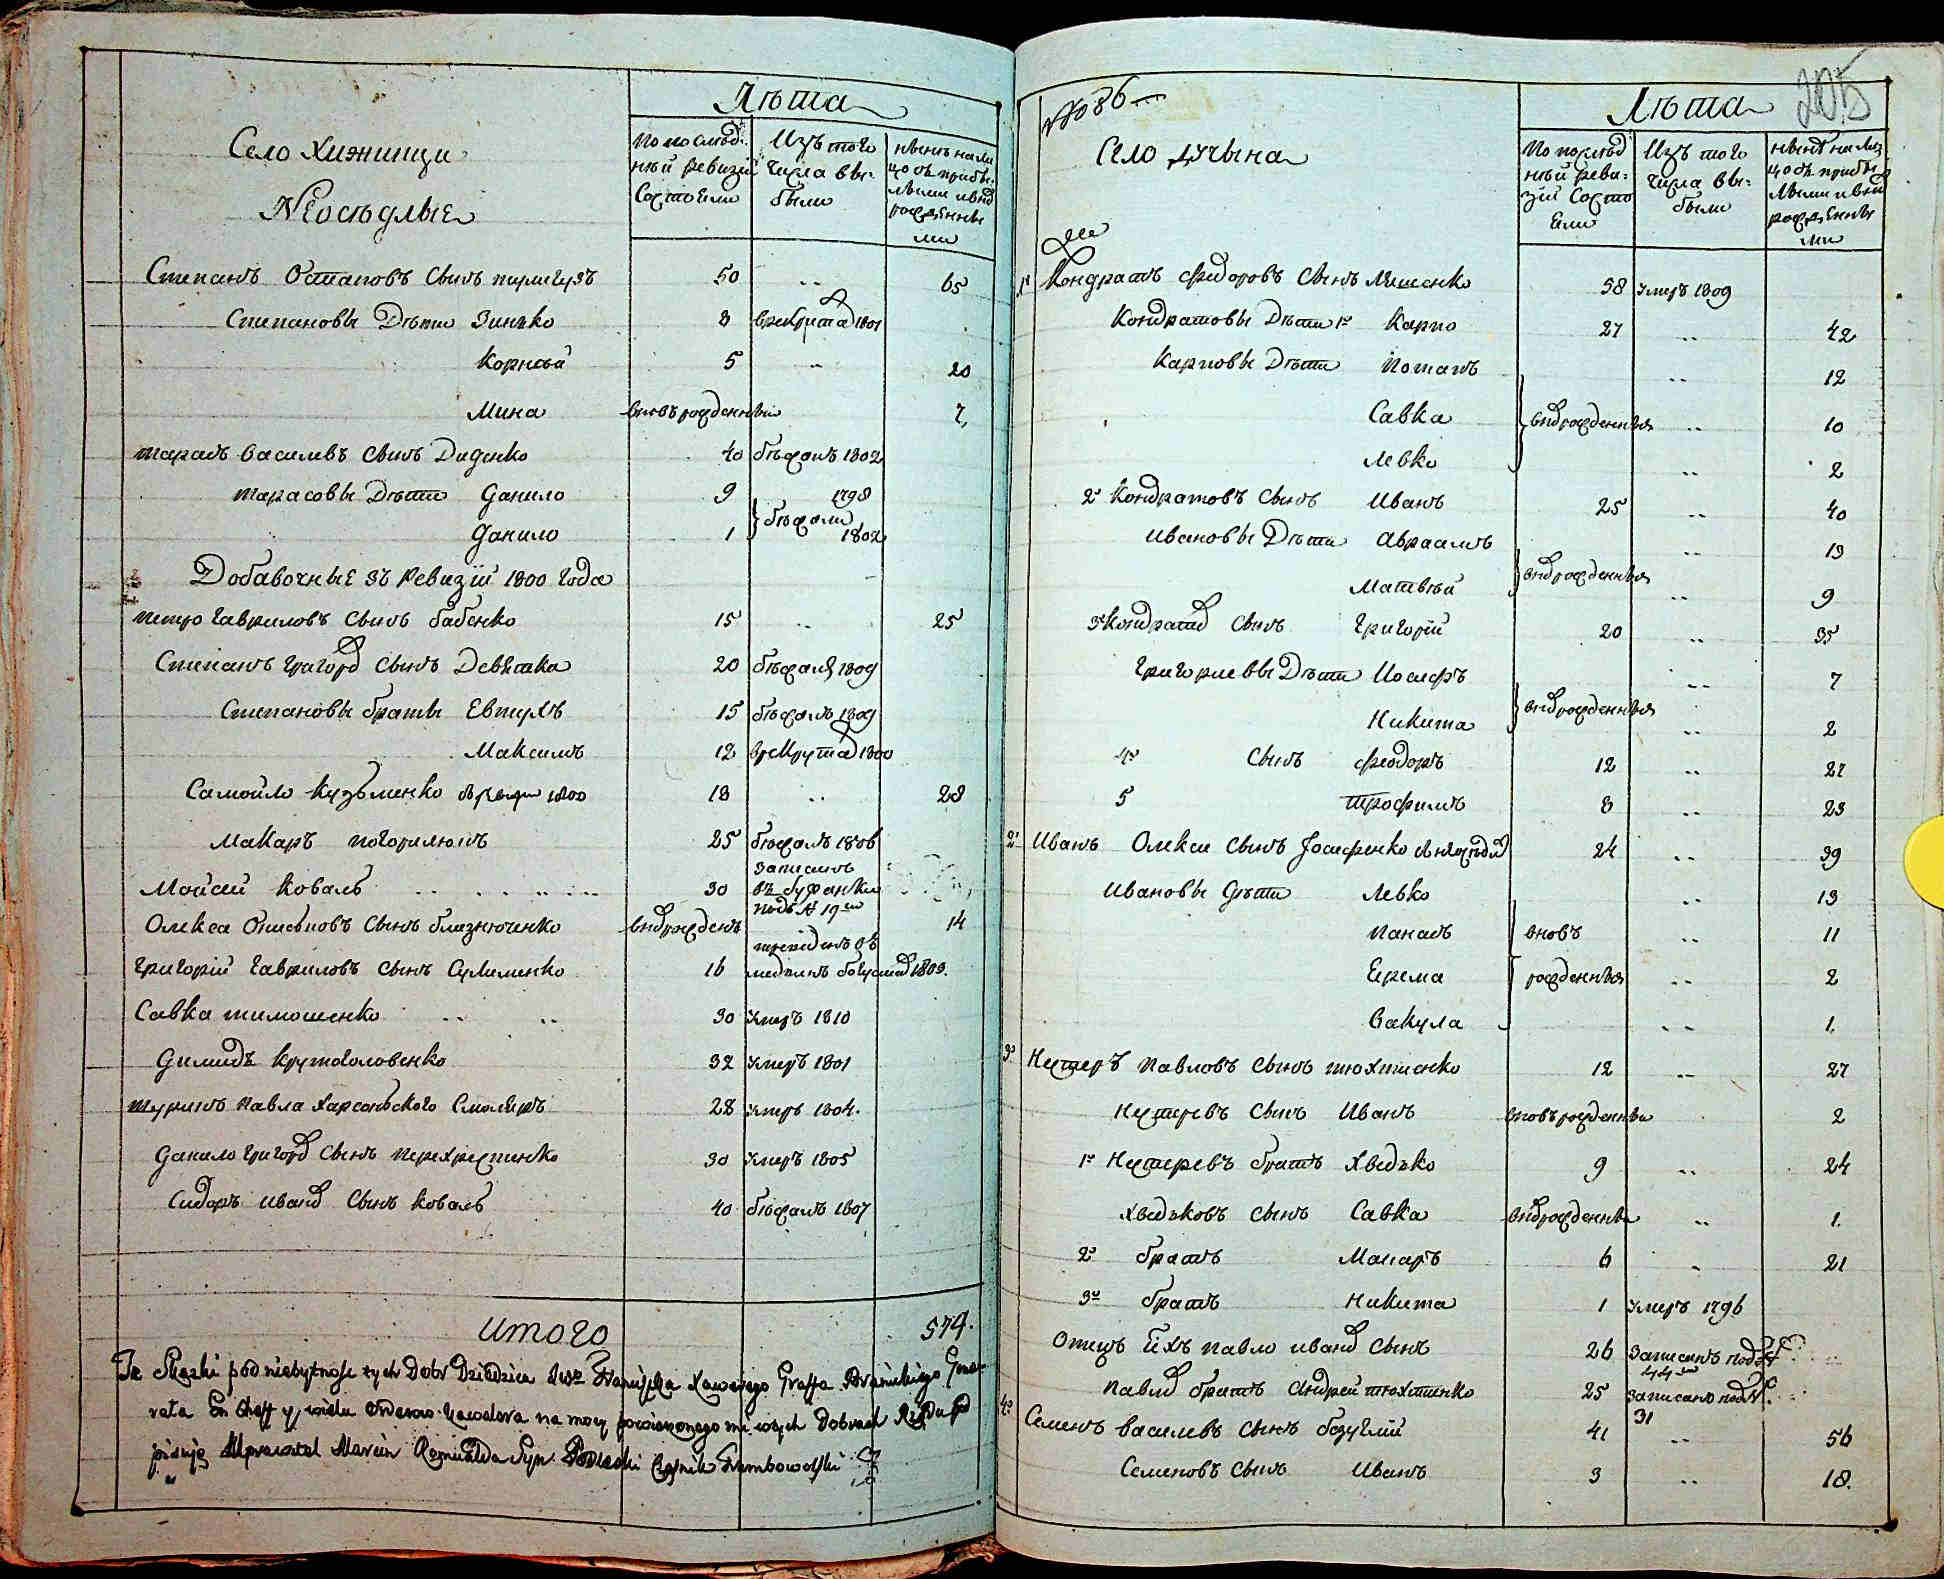 Лѣта
Село Хижинци
Неосѣдлые
По послѣд:
нѣй ревизіи
Состоели
Изъ того
числа вы:
были
нынѣ на ли
цо съ прибы
лыми и внѣ
рожденны
ми
Степанъ Остаповъ сынъ 50 .. 65
Степановы Дѣти Зинько 8 1801
Корнѣй 5 .. 20
Мина вновьрожденный 7
Тарасъ Василевъ сынъ Диденко 40 бѣжалъ 1802
Тарасовы Дѣти Данило 9 1798
Данило 1 бѣжали 1802
Добавочные зъ Ревизіи 1800 Года
Петро Гавриловъ сынъ Бабенко 15 .. 25
Степанъ Григор сынъ Девятка 20 бѣжалъ 1809
Степановы браты 15 бѣжалъ 1809
Максимъ 12 1800
Самойло Кузьменко 1800 18 .. 28
Макаръ 25 бѣжалъ 1806
Мойсей Коваль 30 Записанъ
подъ № 19
Олекса сынъ Близнюченко внврожденъ 14
Григорій Гавриловъ сынъ Сулименко 16 1809.
Савка Тимошенко .. .. 30 умеръ 1810
Демидъ Крутоголовенко 32 умеръ 1801
Павла 28 умеръ 1804.
Данило Григор сынъ Перехрестенко 30 умеръ 1805
Сидоръ Иван сынъ Коваль 40 бѣжалъ 1807
Итого 574.
Te Skazki pod niebytność tych Dobr Dziedzica Franciszka Xawerego Graffa Branickiego Gene
rała En Cheff y wielu Orderow Kawalera na mocy powierzonego mi w tych Dobrach Rządu pod
pisuję Marcin Romualda Syn
№ 86
205
Село Лучына
Лѣта
По послѣд
нѣй реви:
зіи Состо
ели
Изъ того
числа вы:
были
нынѣ на лиц
цо съ прибы
лыми и внѣ
рожденны
ми
1й Кондратъ Федоровъ Сынъ Ляшенко 58 умеръ 1809
Кондратовы Дѣти 1й Карпо 27 .. 42
Карповы Дѣти Потапъ .. 12
Савка внврожденныя .. 10
Левко .. 2
2й Кондратовъ Сынъ Иванъ 25 .. 40
Ивановы Дѣти Авраамъ .. 13
Матвѣй внврожденныя .. 9
3й Кондрат Сынъ Григорій 20 .. 35
Григориевы Дѣти Иосифъ .. 7
Никита внврожденныя .. 2
4й Сынъ Федоръ 12 .. 27
5 Трофимъ 8 .. 23
2й Иванъ Олекси Сынъ 24 .. 39
Ивановы Дѣти Левко .. 13
Панасъ вновъ .. 11
Ерема рожденныя .. 2
Вакула .. 1.
3й Нестеръ Павловъ Сынъ Тюхтиенко 12 .. 27
Нестеревъ Сынъ Иванъ вновърожденны 2
1й Нестеревъ братъ Хведько 9 .. 24
Хведьковъ Сынъ Савка внврожденны .. 1.
2й братъ Макаръ 6 . 21
3й братъ Никита 1 умеръ 1796
Отецъ ихъ Павло Иван Сынъ 26 Записанъ подъ №
44
Павлов братъ Андрей Тюхтиенко 25 Записано подъ №.
31
4й Семенъ Василевъ Сынъ Безуглий 41 .. 56
Семеновъ Сынъ Иванъ 3 .. 18.